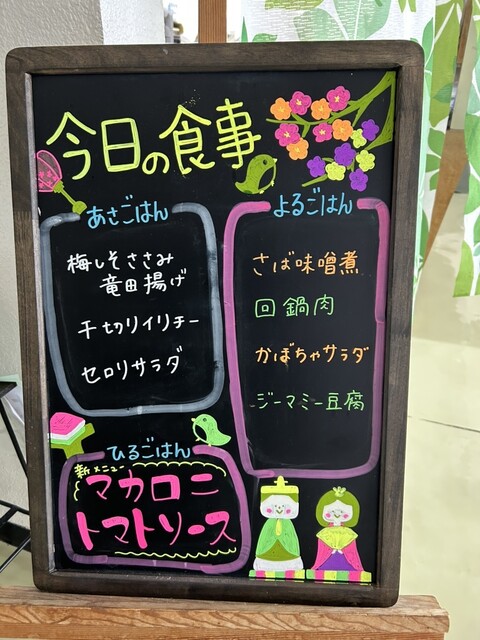 今日の食事
あさごはん
梅しそささみ
竜田揚げ
千切りイリチー
セロリサラダ
ひるごはん
新メニュー
マカロニ
トマトソース
よるごはん
さば味噌煮
回鍋肉
かぼちゃサラダ
ジーマミー豆腐